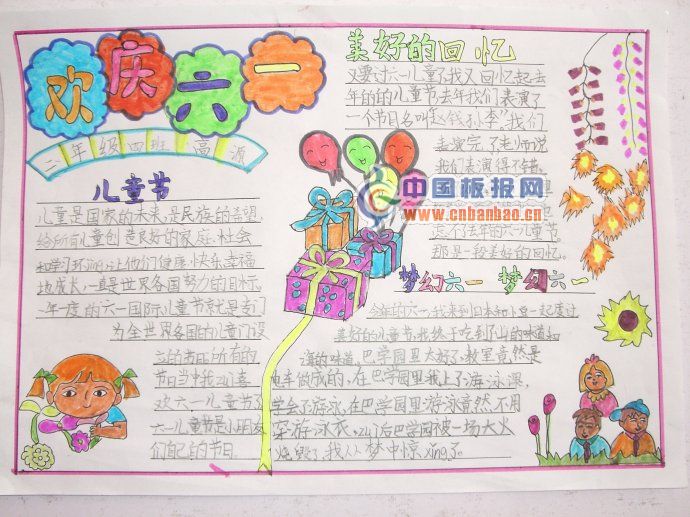 欢庆六一
二年级四班 高源
儿童节
儿童是国家的未来,是民族的希望,
给所有儿童创造良好的家庭、社会
和学习环jing,让他们健康、快乐、幸福
地成长,一直是世界各国努力的目标,
一年一度的六一国际儿童节就是专门
为全世界各国的儿童们设
立的节日,所有的
节日当中我zui喜
欢六一儿童节了
六一儿童节是小朋友
们自己的节日。
美好的回忆
又要过六一儿童了,我又回忆起去
年的的儿童节去年我们表演了
一个节目名叫《赵钱孙李》。我们
表演完了老师说
我们表演得不错。
中国板报网
www.cnbanbao.cn
忘不了去年的六一儿童节。
那是一段美好的回忆。
梦幻六一 梦幻六一
今年的六一我来到日本和小豆一起度过
美好的儿童节,我终于吃到了山的味道和
海的味道,巴学园里太好了,教室竟然是
电车做成的,在巴学园里我上了游泳课,
学会了游泳,在巴学园里游泳竟然不用
穿游泳衣,zui后巴学园被一场大火
烧毁了,我从梦中惊xing了。